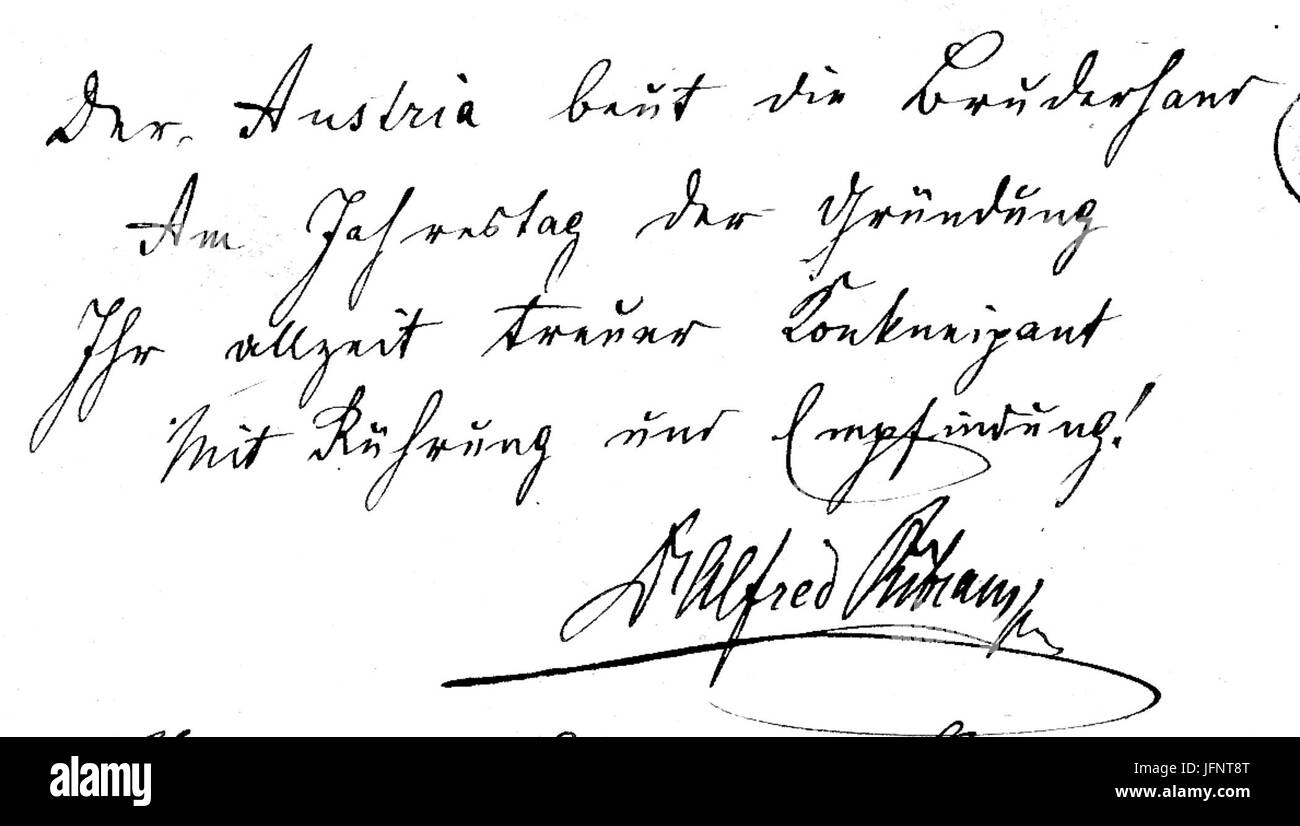 Der Austria beut die Bruderhand
Am Jahrestag der Gründung
Ihr allzeit treuer Konkneipant
Mit Rührung und Empfindung!
Dr Alfred
alamy stock photo
JFNT8T
www.alamy.com